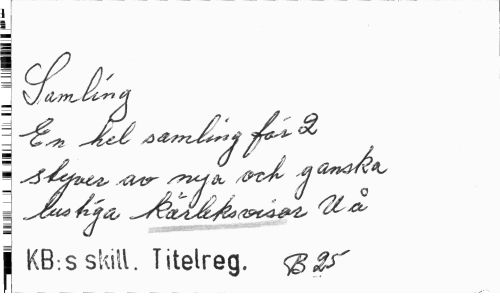 Samling
En hel samling för 2
styver av nya och ganska
lustiga kärleksvisor U å
KB:s skill. Titelreg. B 25